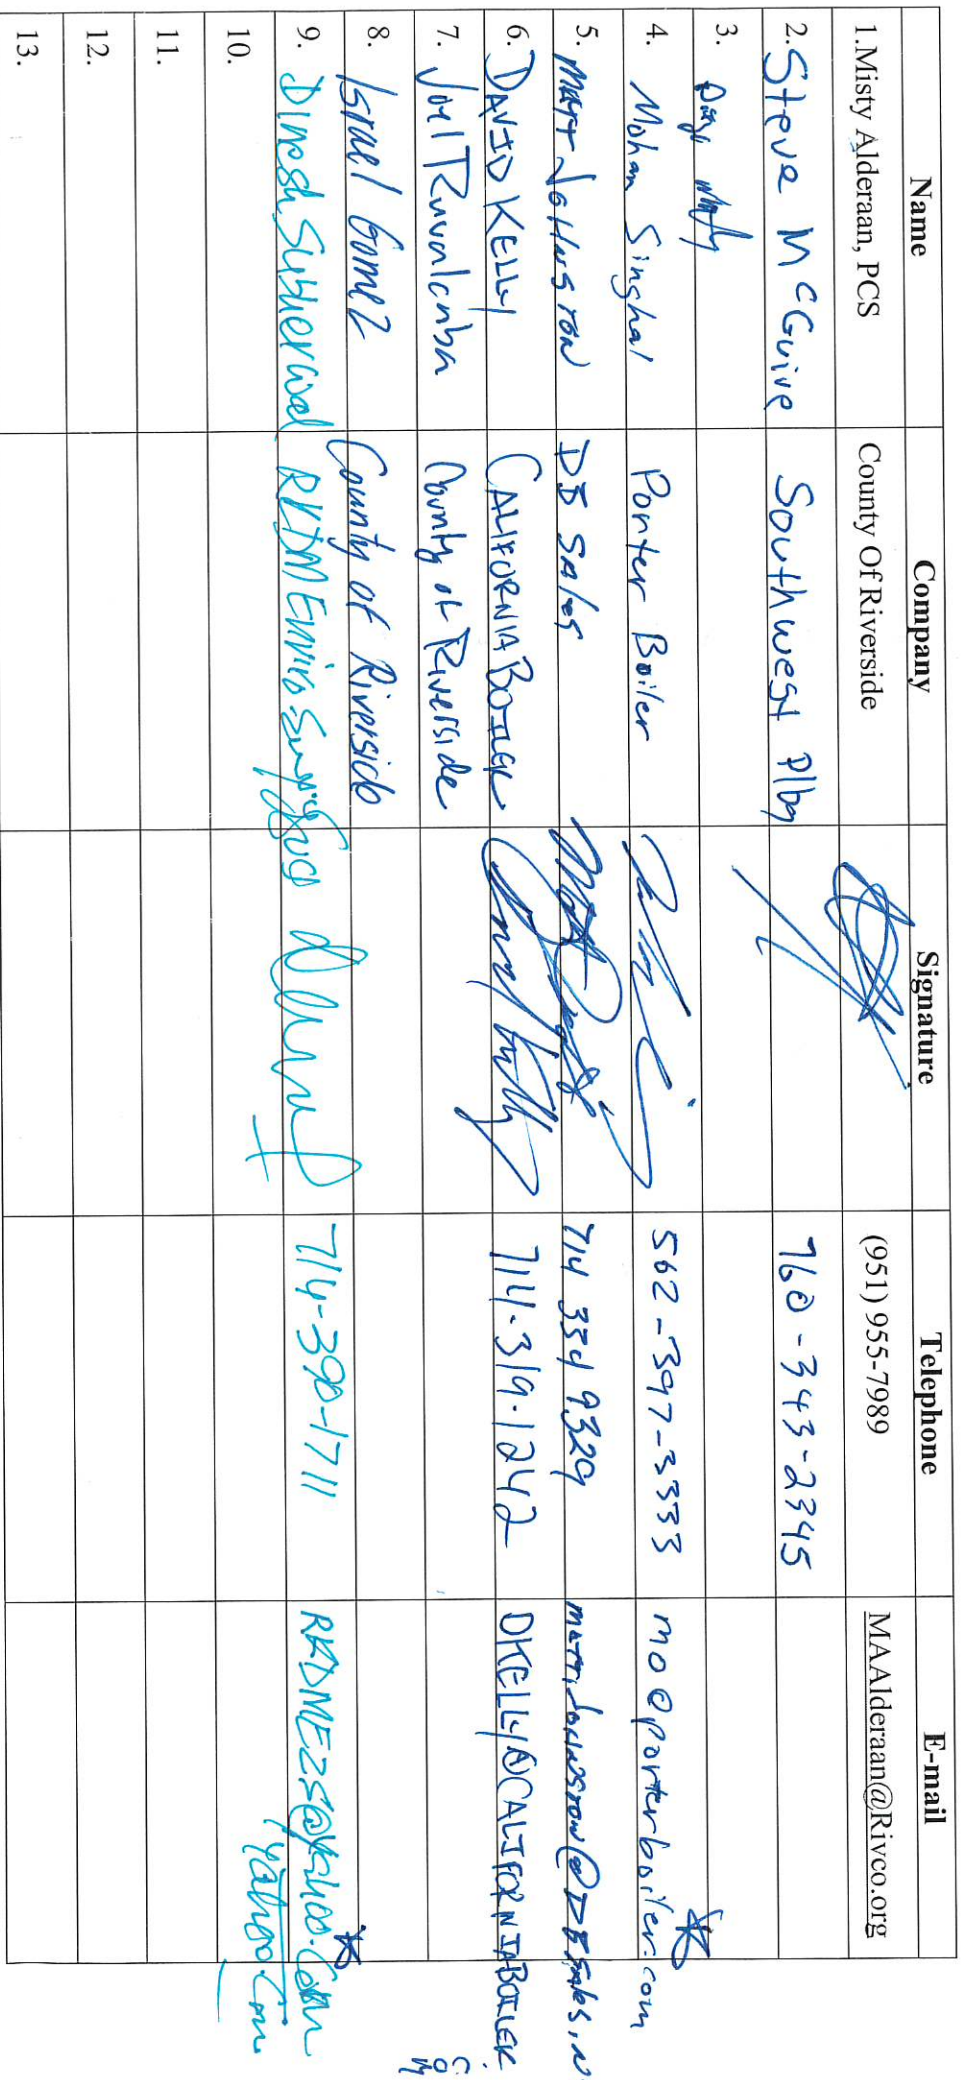 Name Company Signature Telephone E-mail
1.Misty Alderaan, PCS County Of Riverside (951) 955-7989 MAAlderaan@Rivco.org
2. Steve McGuire Southwest Plbg 760-343-2345
3.
4. Mohan Singhal Porter Boiler 562-397-3333 mo@porterboiler.com
5. MATT JOHNSTON DB SAles 714 334 9329
6. DAVID KELLY CALIFORNIA BOILER 714.319.1242 DKELLY@CALIFORNIABOILER.COM
7. Joel Ruvalcaba County of Riverside
8. Israel Gomez County of Riverside
9. Dinesh RKDM Enviro 714-390-1711 RKDMEZS@
Yahoo.Com
10.
11.
12.
13.